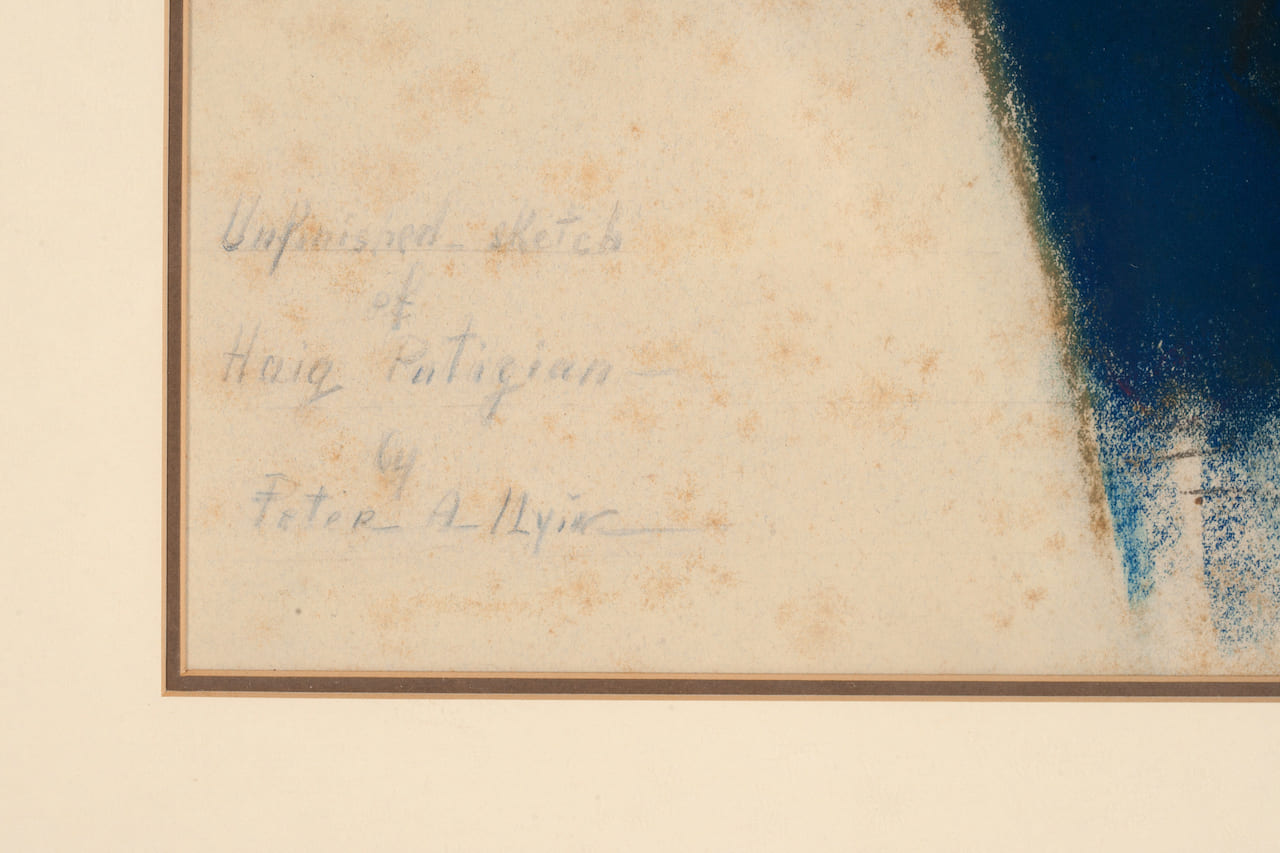 Unfinished sketch
of
Haig Patigian
by
Peter A Ilyin